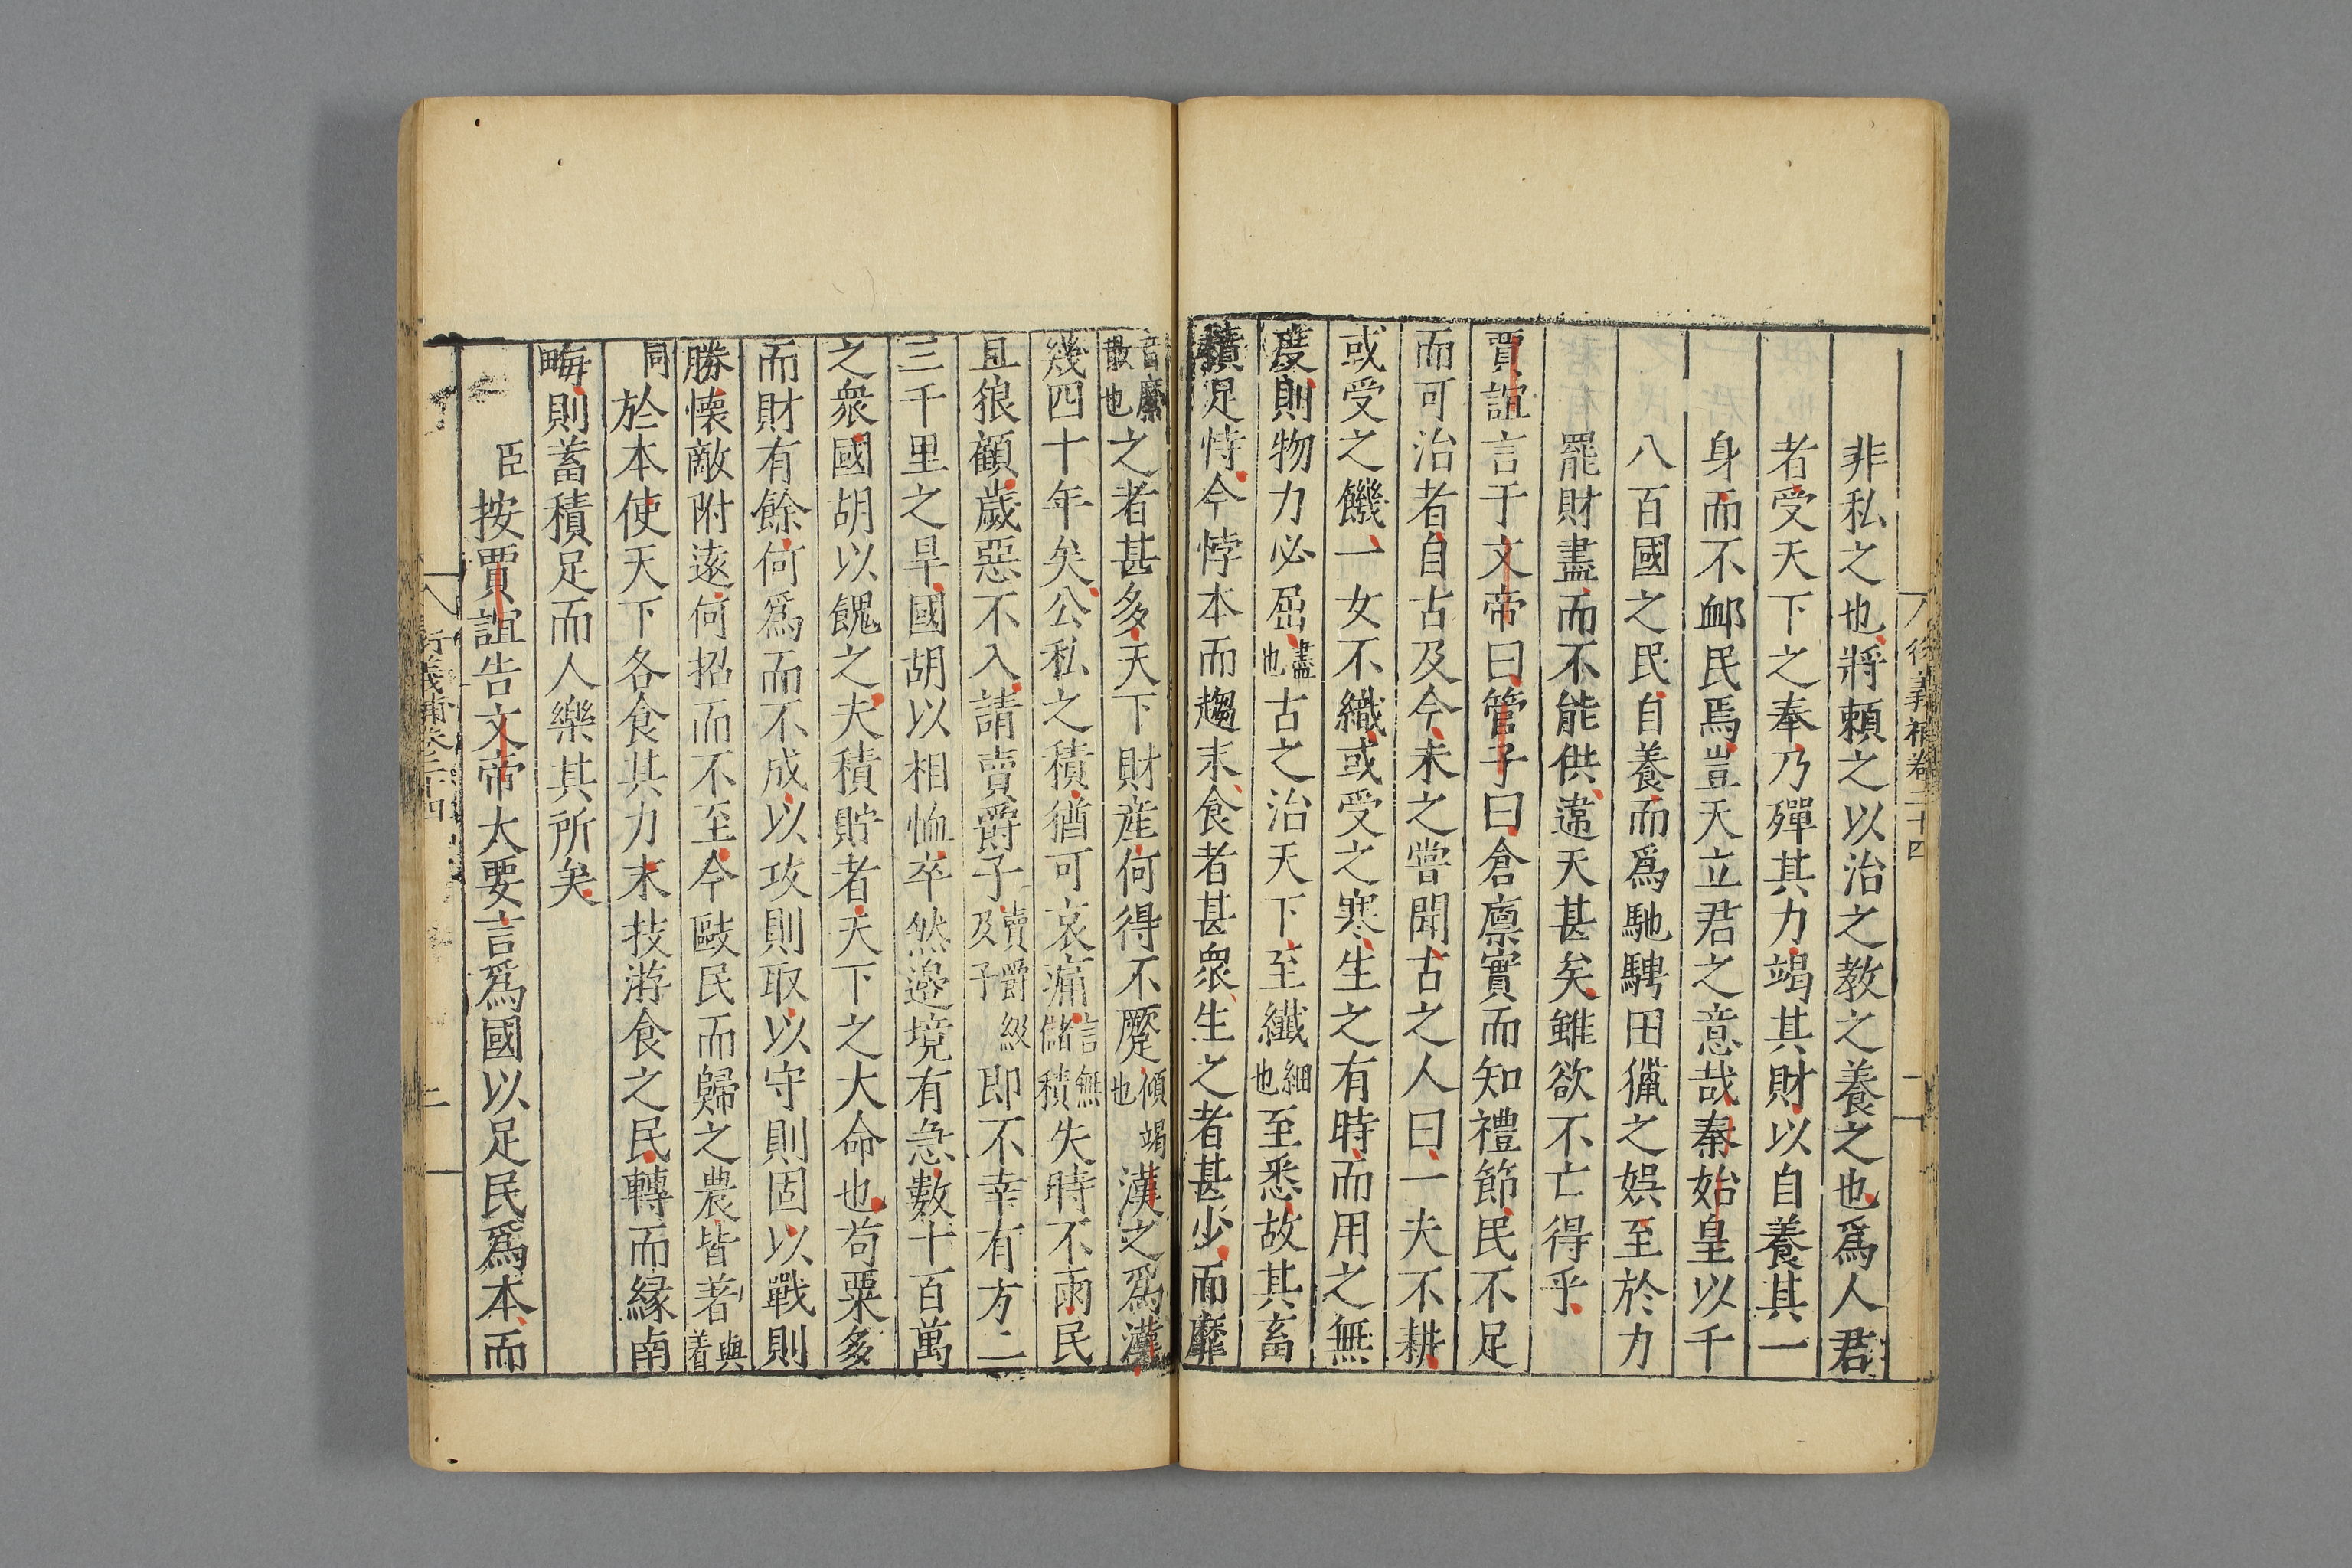 非私之也將頼之以治之教之養之也爲人君
者受天下之奉乃殫其力竭其財以自養其一
身而不䘏民焉豈天立君之意哉秦始皇以千
八百國之民自養而爲馳騁田獵之娯至於力
罷財盡而不能供違天甚矣雖欲不亡得乎
賈誼言于文帝曰管子曰倉廪實而知禮節民不足
而可治者自古及今未之嘗聞古之人曰一夫不耕
或受之饑一女不織或受之寒生之有時而用之無
度則物力必屈盡也古之治天下至纎細也至悉故其畜
積足恃今悖本而趨末食者甚衆生之者甚少而靡
音縻散也之者甚多天下財産何得不蹷傾竭也漢之爲漢
幾四十年矣公私之積猶可哀痛言無儲積失時不雨民
且狼顧歲惡不入請賣爵子賣爵級及子即不幸有方二
三千里之旱國胡以相恤卒然邉境有急數十百萬
之衆國胡以餽之夫積貯者天下之大命也苟粟多
而財有餘何爲而不成以攻則取以守則固以戰則
勝懐敵附遠何招而不至今敺民而歸之農皆著與着
同於本使天下各食其力末技游食之民轉而縁南
畮則蓄積足而人樂其所矣
臣按賈誼告文帝大要言爲國以足民爲本而
衍義補卷二十四
二